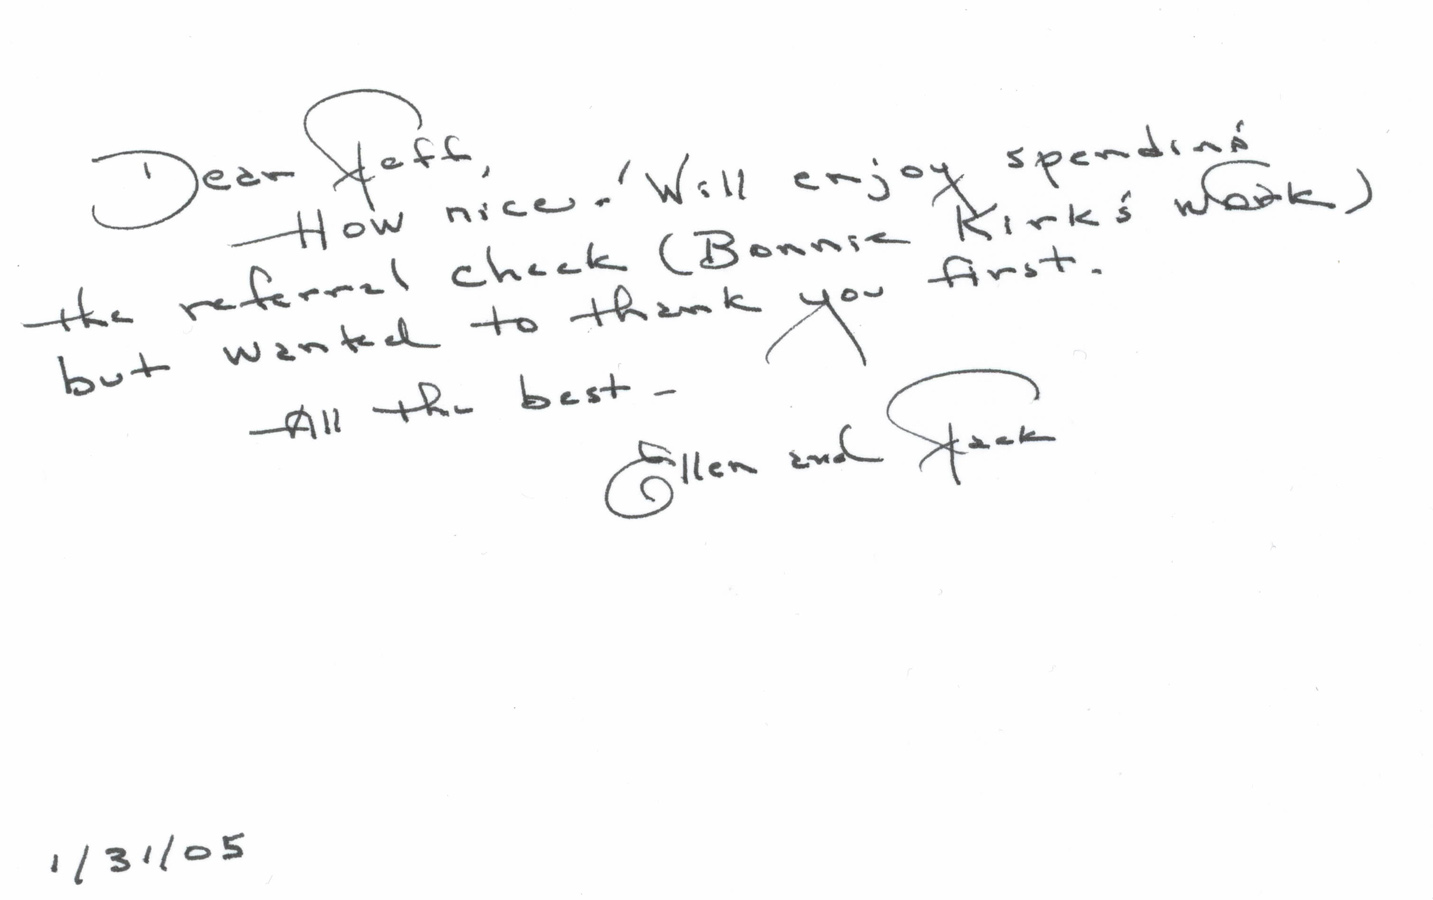 Dear Jeff,
How nice! Will enjoy spending
the referral check (Bonnie Kirk's work)
but wanted to thank you first.
All the best -
Ellen and Jack
1/31/05